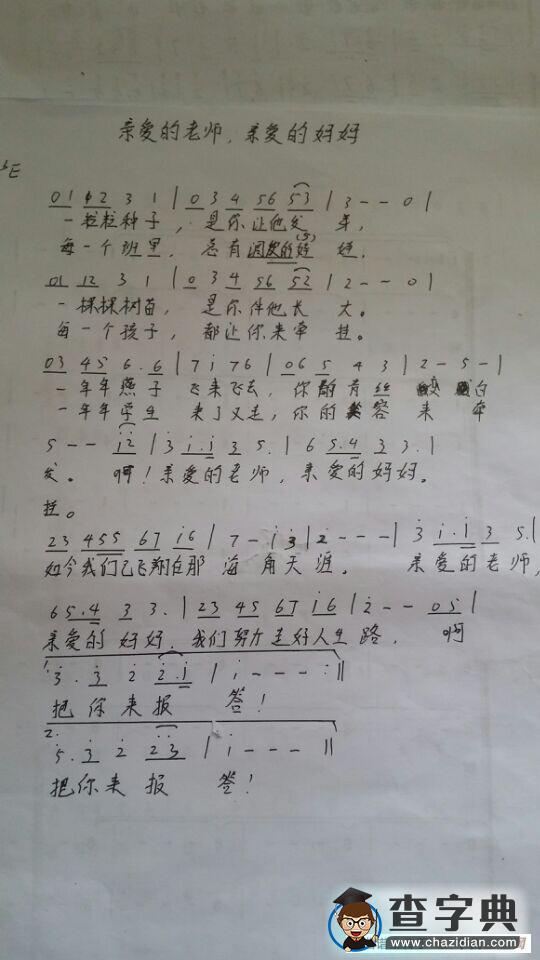 亲爱的老师,亲爱的妈妈
♭E
01 12 3 1 | 0 3 4 56 53 | 3 - - 0 |
一粒粒种子,是你让他发 芽,
每一个班里,总有调皮的娃 娃,
01 12 3 1 | 0 3 4 56 52 | 2 - - 0 |
一棵棵树苗,是你伴他长 大。
每一个孩子,都让你来牵 挂。
03 45 6.6 | 7 i 76 | 06 5 4 3 | 2 - 5 - |
一年年燕子 飞来飞去,你的青丝 白
一年年学生 来了又走,你的笑容 来 牵
5 - - i2 | 3 i.i 3 5. | 6 5.4 3 3. |
发。 啊!亲爱的老师,亲爱的妈妈。
挂。
23 455 67 i6 | 7 - i 3 | 2 - - - | 3 i.i 3 5. |
如今我们已飞翔在那 海角天涯。 亲爱的老师,
65.4 3 3. | 23 45 67 i6 | i2 - - 05 |
亲爱的妈妈,我们努力走好人生路, 啊
1. 3. 3 2 2.i | i - - - :||
把你来报 答!
2. 5. 3 2 23 | i - - - ||
把你来报 答!
查字典
www.chazidian.com